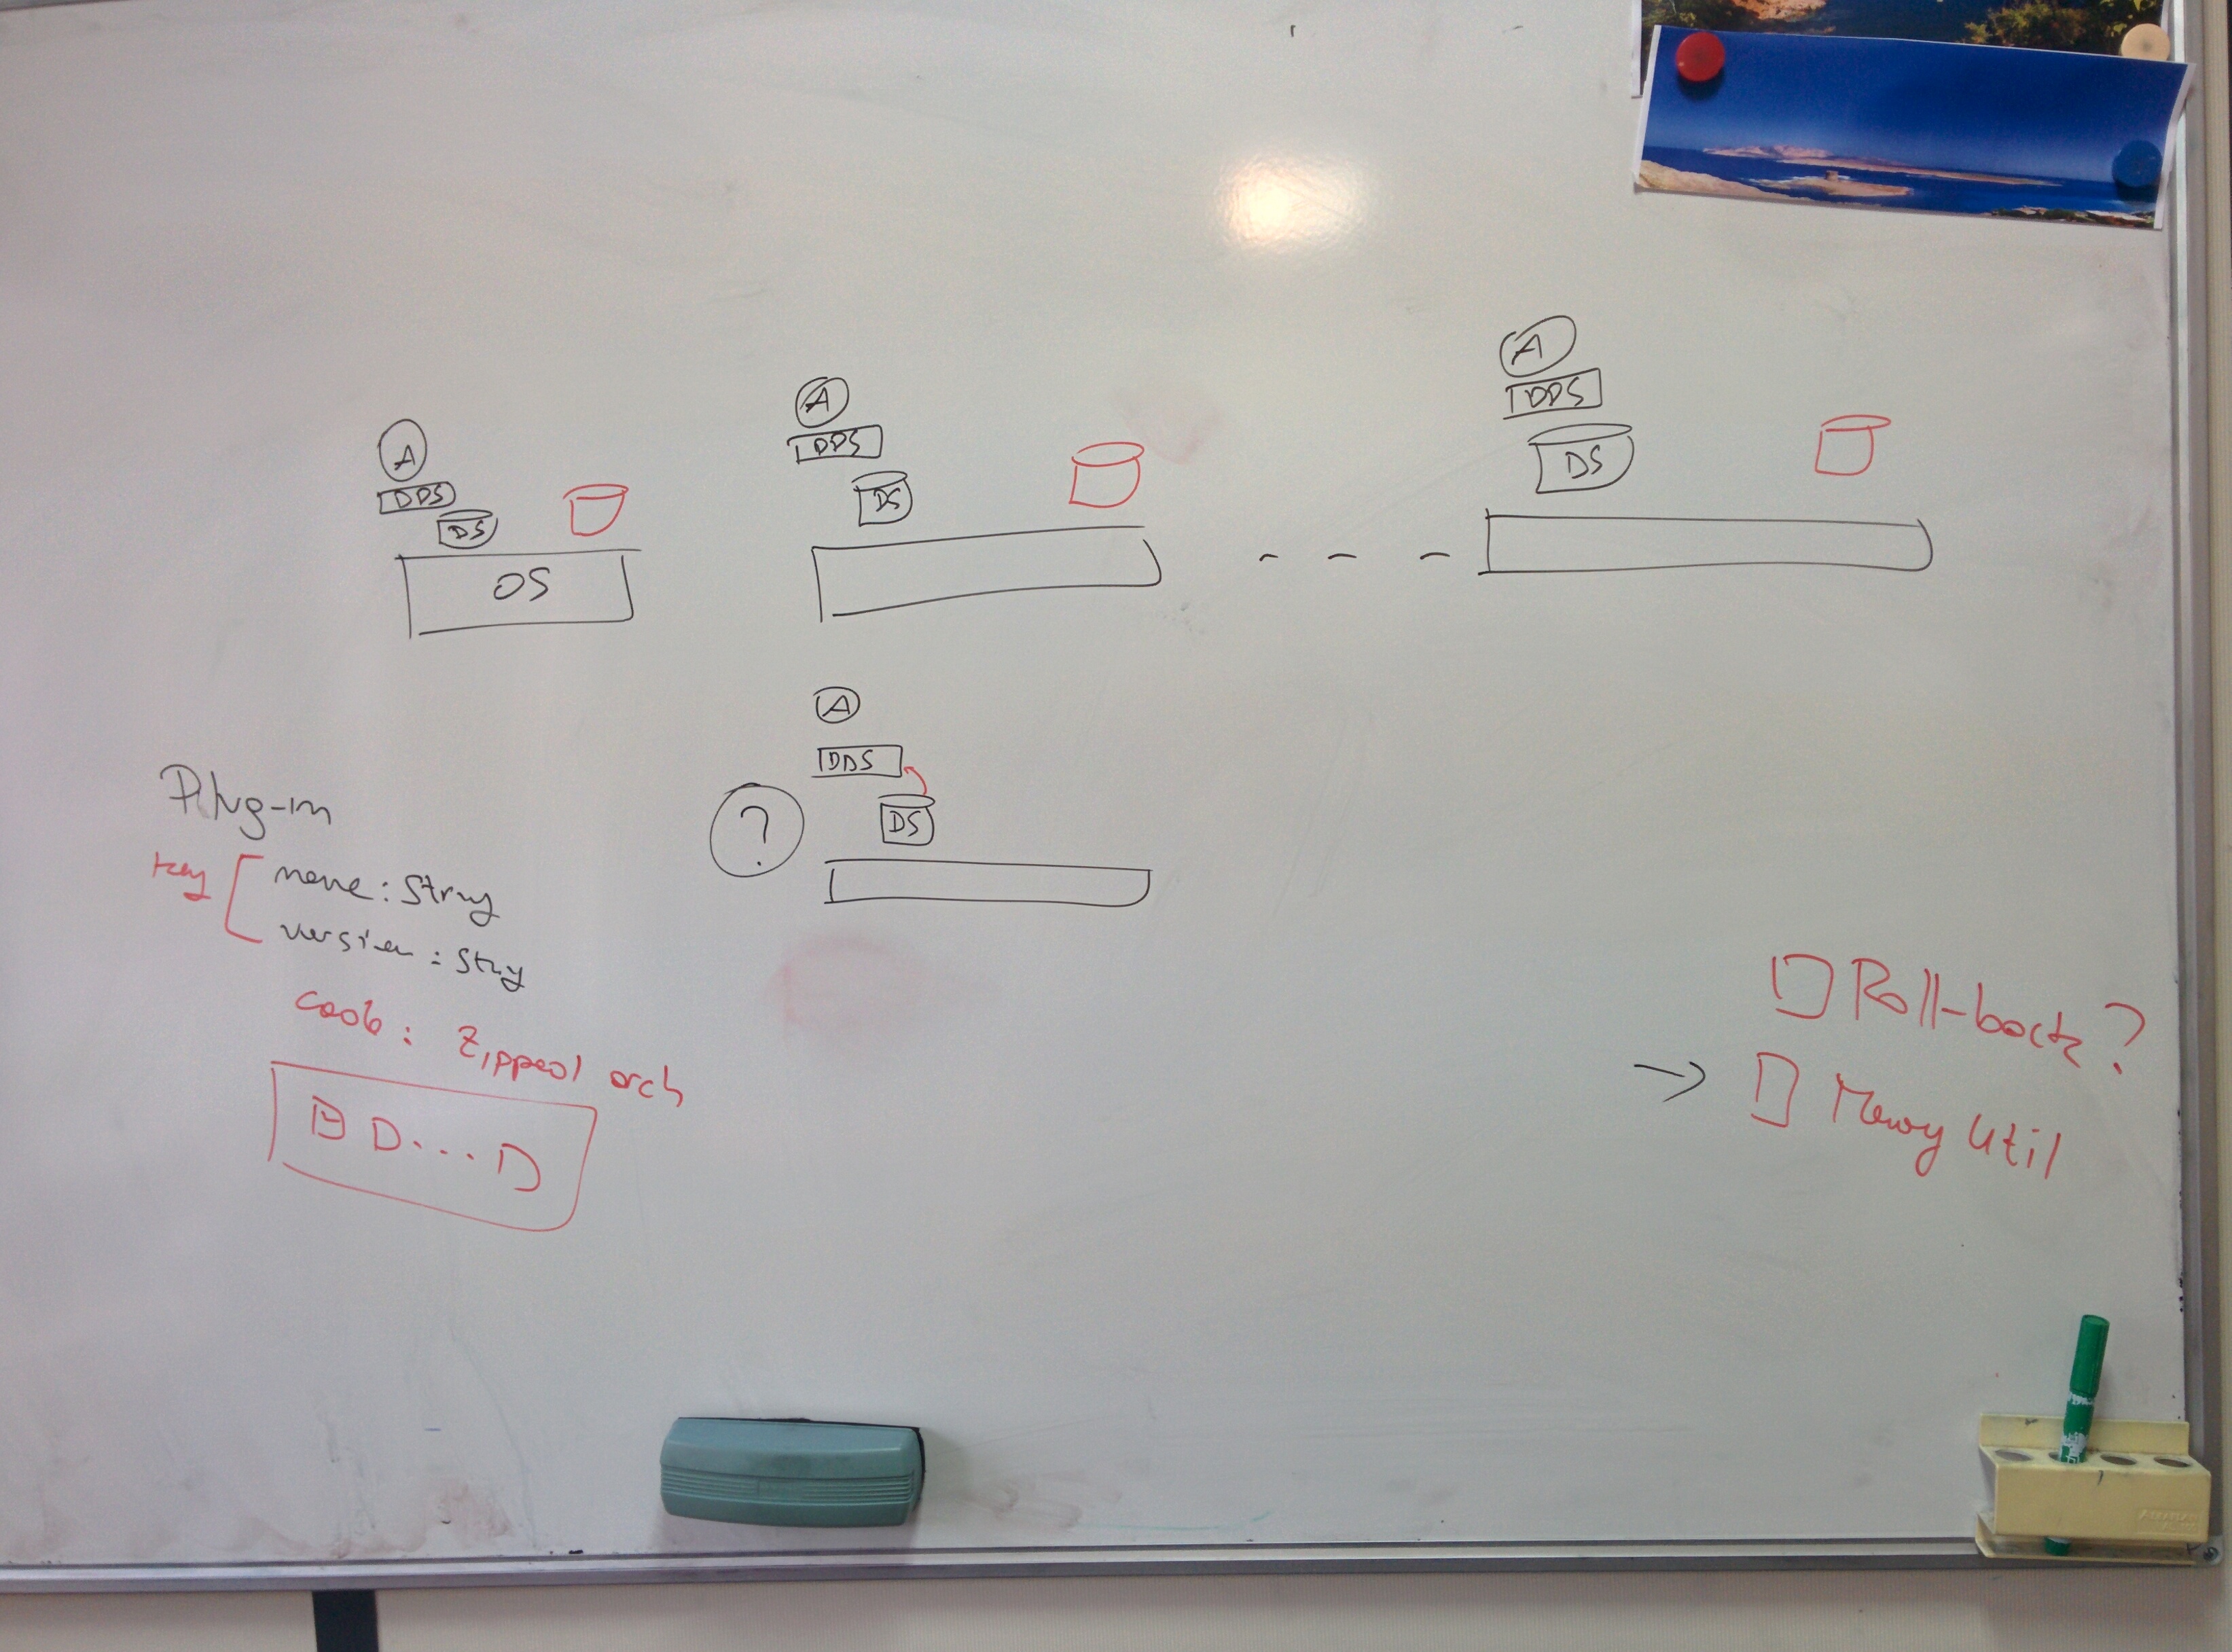 A
DDS
DS
OS
A
DDS
DS
- - -
A
DDS
DS
A
DDS
DS
?
Plug-in
key
name: String
version: String
code: Zipped arch
Roll-back?
→ Memory Util